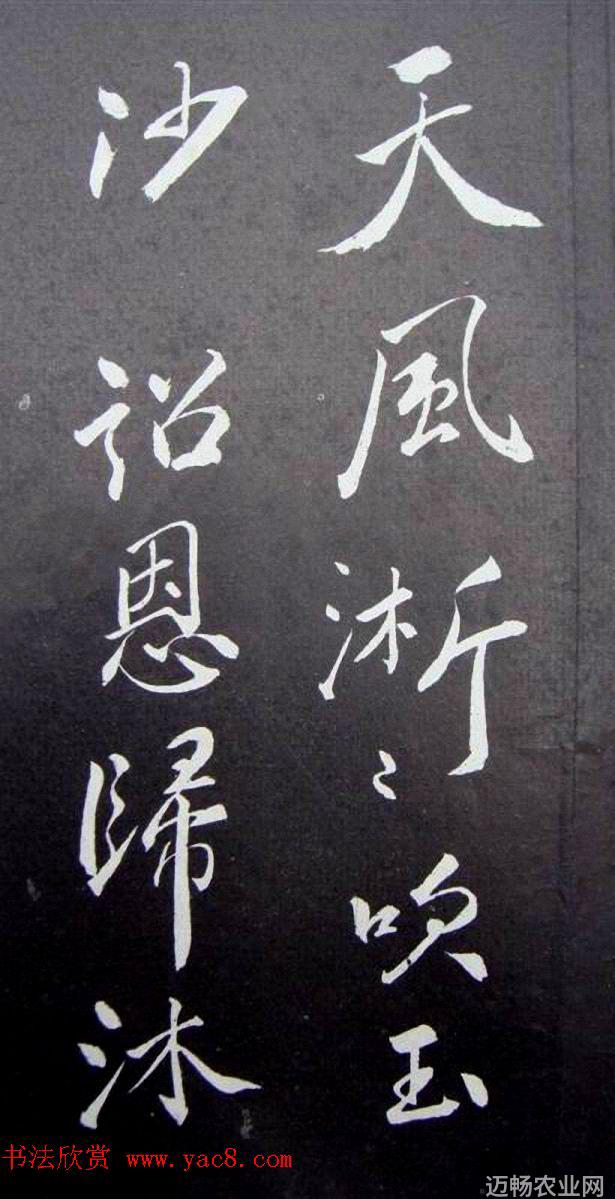 天風淅〻吹玉
沙詔恩歸沐
书法欣赏 www.yac8.com
迈畅农业网